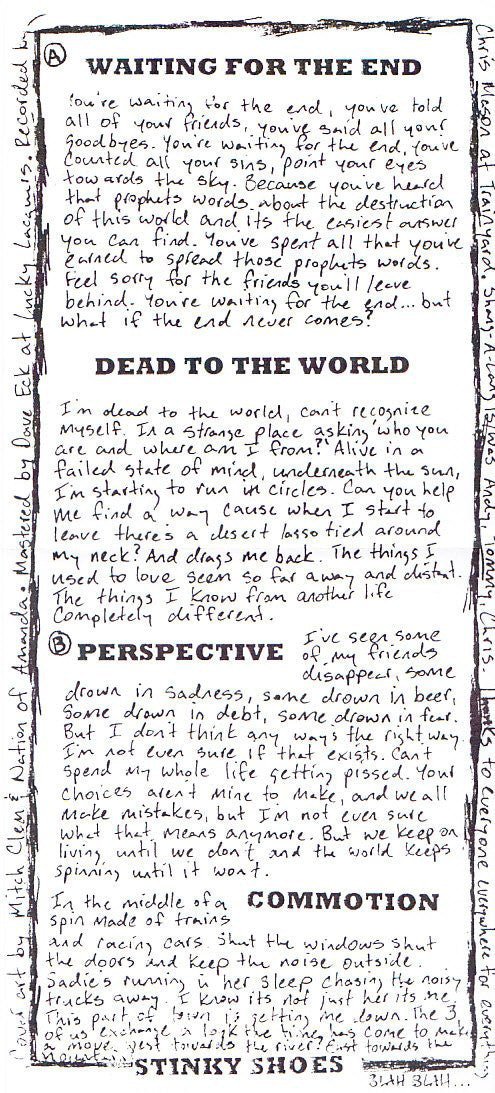 A WAITING FOR THE END
You're waiting for the end, you've told
all of your friends, you've said all your
goodbyes. You're waiting for the end, you've
counted all your sins, point your eyes
towards the sky. Because you've heard
that prophets words about the destruction
of this world and its the easiest answer
you can find. You've spent all that you've
earned to spread those prophets words.
Feel sorry for the friends you'll leave
behind. You're waiting for the end... but
what if the end never comes?
DEAD TO THE WORLD
I'm dead to the world, can't recognize
myself. In a strange place asking "who you
are and where am I from?" Alive in a
failed state of mind, underneath the sun,
I'm starting to run in circles. Can you help
me find a way cause when I start to
leave there's a desert lasso tied around
my neck? And drags me back. The things I
used to love seem so far away and distant.
The things I know from another life
completely different.
B PERSPECTIVE
I've seen some
of my friends
disappear, some
drown in sadness, some drown in beer,
Some drown in debt, some drown in fear.
But I don't think any ways the right way
I'm not even sure if that exists. Can't
spend my whole life getting pissed. Your
choices aren't mine to make, and we all
make mistakes, but I'm not even sure
what that means anymore. But we keep on
living until we don't and the world keeps
spinning until it won't.
COMMOTION
In the middle of a
spin made of trains
and racing cars. Shut the windows shut
the doors and keep the noise outside.
Sadie's running in her sleep chasing the noisy
trucks away. I know its not just her its me
This part of town is getting me down. The 3
of us exchange a look the time has come to make
a move west towards the river? East towards the
mountain
STINKY SHOES
Cover art by Mitch Clem & Nation of Amanda. Mastered by Dave Eck at Lucky Lacquers. Recorded by
Chris Mason at Trainyard. Shang-A-Lang is/was Andy, Tommy, Chris. Thanks to everyone everywhere for everything
BLAH BLAH...